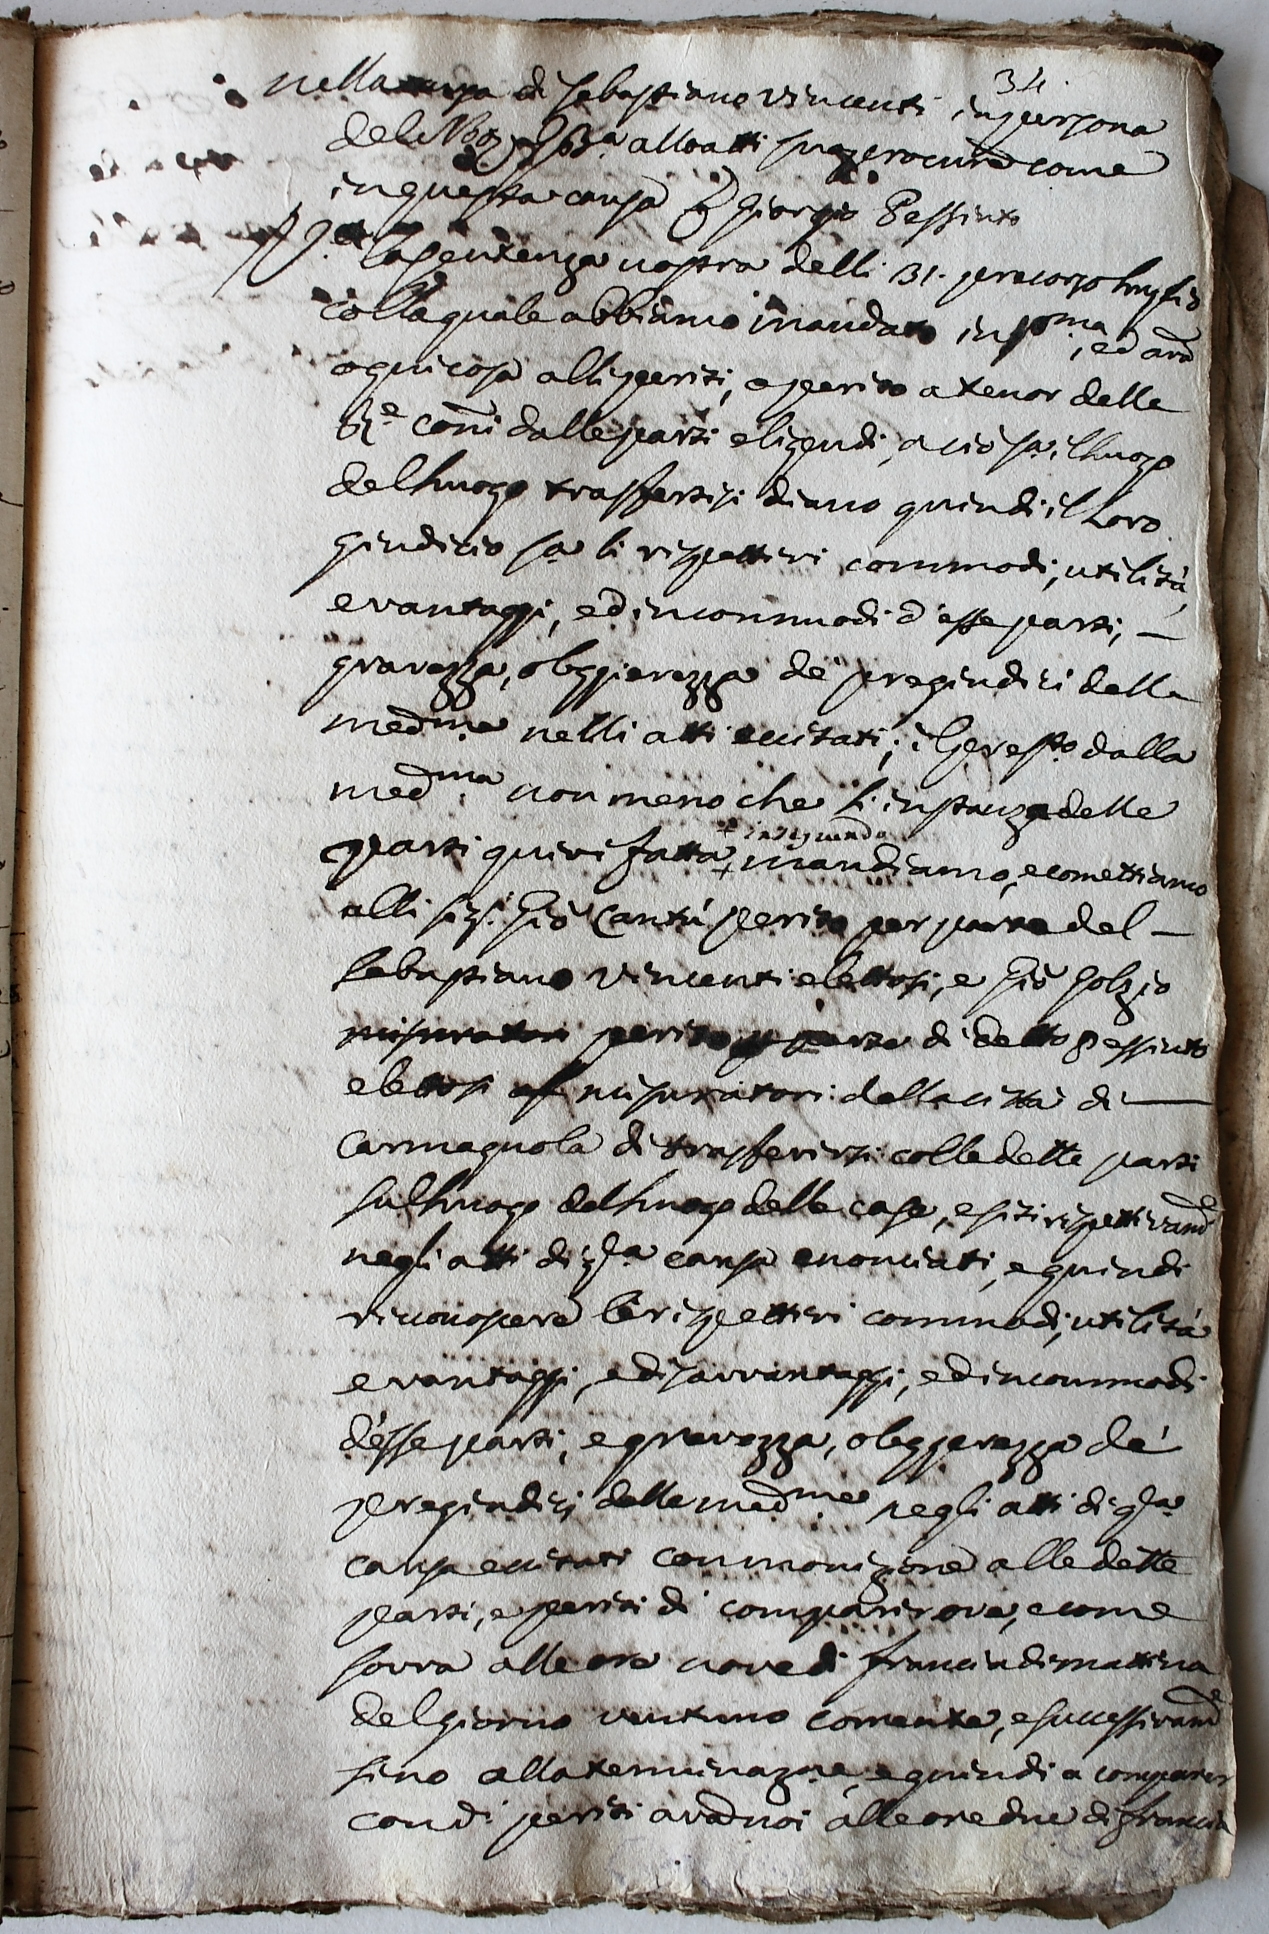 34
nella causa di Sebastiano Vincenti in persona
del alloatti suo procure come
in questa causa Giorgio Bessiuto
la sentenza nostra delli 31. pross.o luglio
colla quale abbiamo mandato in p.ma, ed av.
ogni cosa alli periti, o perito a tenor delle
R.e Con.ni dalle parti eligendi, acciò s.a il luogo
del luogo trasfertisi diano quindi il loro
giudicio s.a li rispettivi commodi, utilità,
e vantaggi, ed incommodi d'esse parti, —
gravezza, o leggierezza de' pregiudici della
med.me nelli atti eccitati; il presto dalla
med.ma non meno che l'instanza delle
+ inseguendo
parti quivi fatta + mandiamo, e comettiamo
alli Giõ Cantù perito per parte del —
Sebastiano Vincenti elettosi, e Giõ Solzio
misuratori perito p parte di detto Bessiuto
elettosi misuratori della città di —
Carmagnola di trasferirsi colle dette parti
sul luogo del luogo delle case, e siti rispettivam.e
negli atti di q.ta causa enonciati, e quindi
riconoscere le rispettivi commodi, utilità
e vantaggi, e disavvantaggi, ed incommodi
d'esse parti, e gravezza, o leggierezza de'
pregiudici delle med.me negli atti di q.ta
causa eccitati con monizione alle dette
parti, e periti di comparir ove, e come
sovra alle ore nove di francia di mattina
del giorno vent'uno corrente, e successivam.e
sino alla terminaz.ne, e quindi a comparir
con d.i periti avanti noi alle ore due di francia